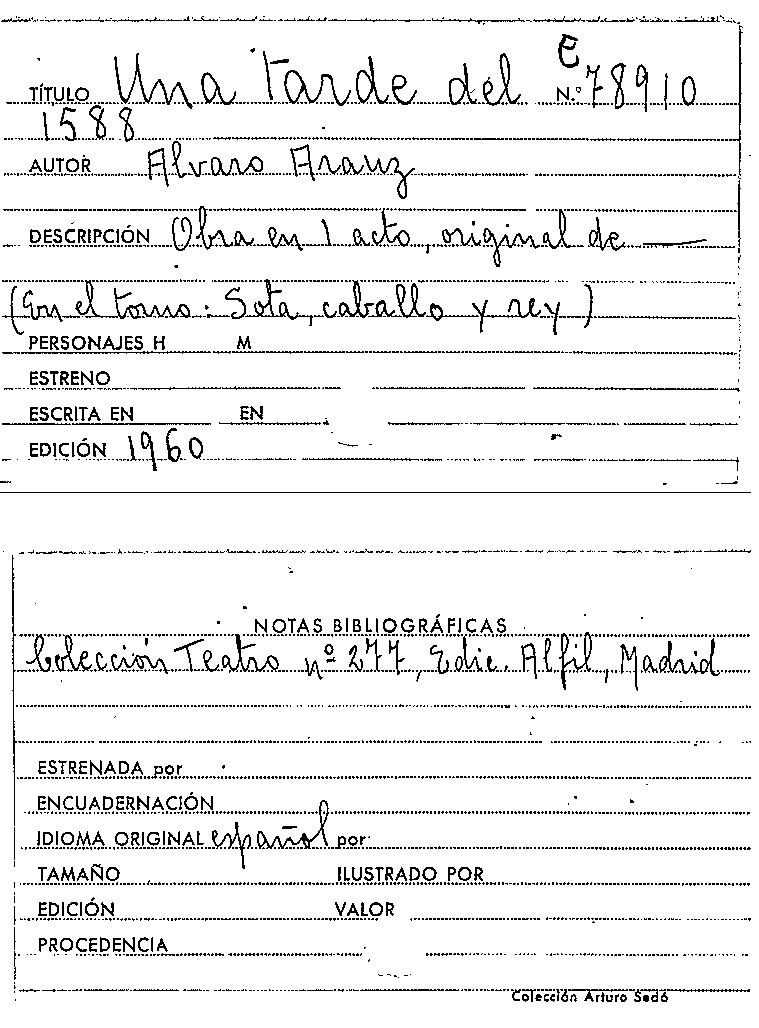 TÍTULO Una tarde del E N.º 78910
1588
AUTOR Alvaro Arauz
DESCRIPCIÓN Obra en 1 acto, original de —
(En el tomo: Sota, caballo y rey)
PERSONAJES H M
ESTRENO
ESCRITA EN EN
EDICIÓN 1960
NOTAS BIBLIOGRÁFICAS
Colección Teatro nº 277, Edic. Alfil, Madrid
ESTRENADA por
ENCUADERNACIÓN
IDIOMA ORIGINAL español por
TAMAÑO ILUSTRADO POR
EDICIÓN VALOR
PROCEDENCIA
Colección Arturo Sedó